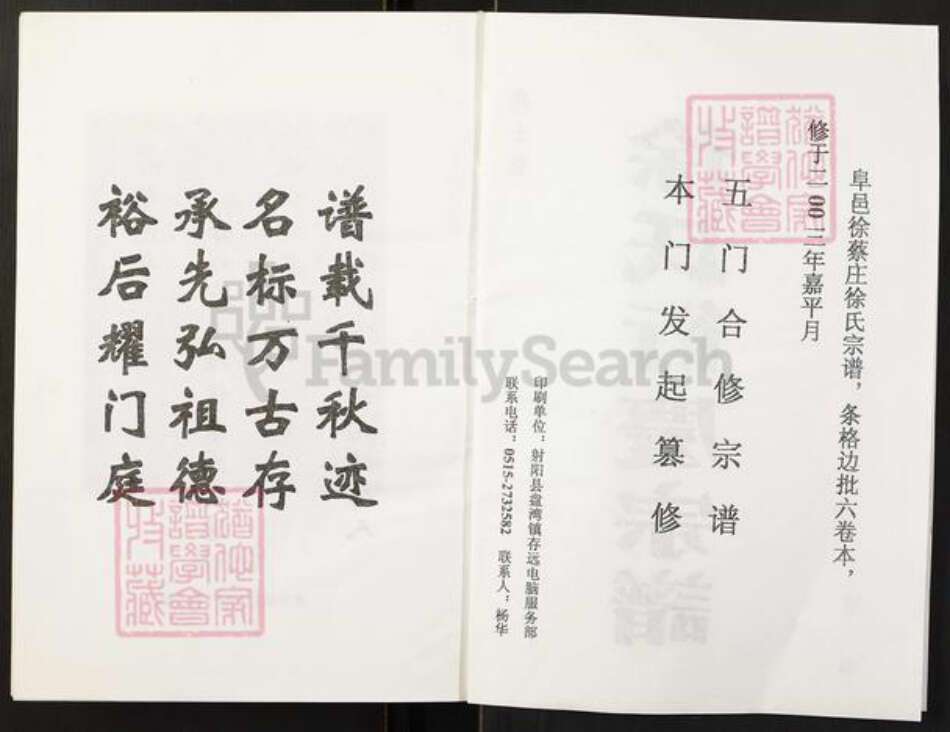 阜邑徐蔡庄徐氏宗谱，条格边批六卷本，
修于二00三年嘉平月
五门合修宗谱
本门发起篡修
印刷单位：射阳县盘湾镇存远电脑服务部
联系电话：0515-2732582 联系人：杨华
谱载千秋迹
名标万古存
承先弘祖德
裕后耀门庭
FamilySearch
譜學會
收藏
譜學會
收藏